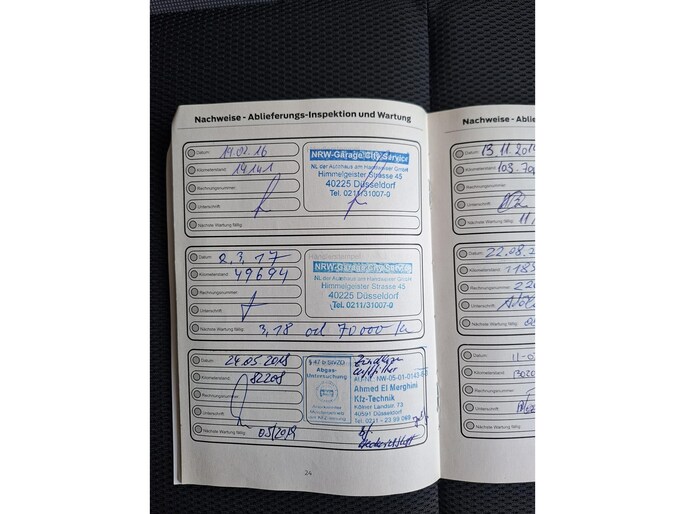 Nachweise - Ablieferungs-Inspektion und Wartung
Datum: 19.02.16
Kilometerstand: 19141
Rechnungsnummer:
Unterschrift:
Nächste Wartung fällig:
NRW-Garage City Service
NL der Autohaus am Handweiser GmbH
Himmelgeister Strasse 45
40225 Düsseldorf
Tel. 0211/31007-0
Datum: 2.3.17
Kilometerstand: 49694
Rechnungsnummer:
Unterschrift:
Nächste Wartung fällig: 3.18 od 70000 Km
NRW-Garage City Service
NL der Autohaus am Handweiser GmbH
Himmelgeister Strasse 45
40225 Düsseldorf
Tel. 0211/31007-0
Datum: 24.05.2018
Kilometerstand: 82208
Rechnungsnummer:
Unterschrift:
Nächste Wartung fällig: 05/2019
§ 47 b StVZO
Abgas-
Untersuchung
Luftfilter
NW-05-01-0143
Ahmed El Merghini
Kfz-Technik
Kölner Landstr. 73
40591 Düsseldorf
Tel. 0211 - 23 99 099
24
Nachweise - Ablie
Datum: 13.11.201
Kilometerstand: 103.70
Rechnungsnummer:
Unterschrift:
Nächste Wartung fällig: 11/
Datum: 22.08.2
Kilometerstand: 1183
Rechnungsnummer: 22
Unterschrift:
Nächste Wartung fällig:
Datum: 11-0
Kilometerstand: 13020
Rechnungsnummer:
Unterschrift:
Nächste Wartung fällig: